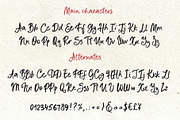 Main characters
Aa Bb Cc Dd Ee Ff Gg Hh Ii Jj Kk Ll Mm
Nn Oo Pp Qq Rr Ss Tt Uu Vv Ww Xx Yy Zz
Alternates
Aa Bb Cc Dd Ee Ff Gg Hh Ii Jj Kk Ll Mm
Nn Oo Pp Qq Rr Ss Tt Uu Vv Ww Xx Yy Zz